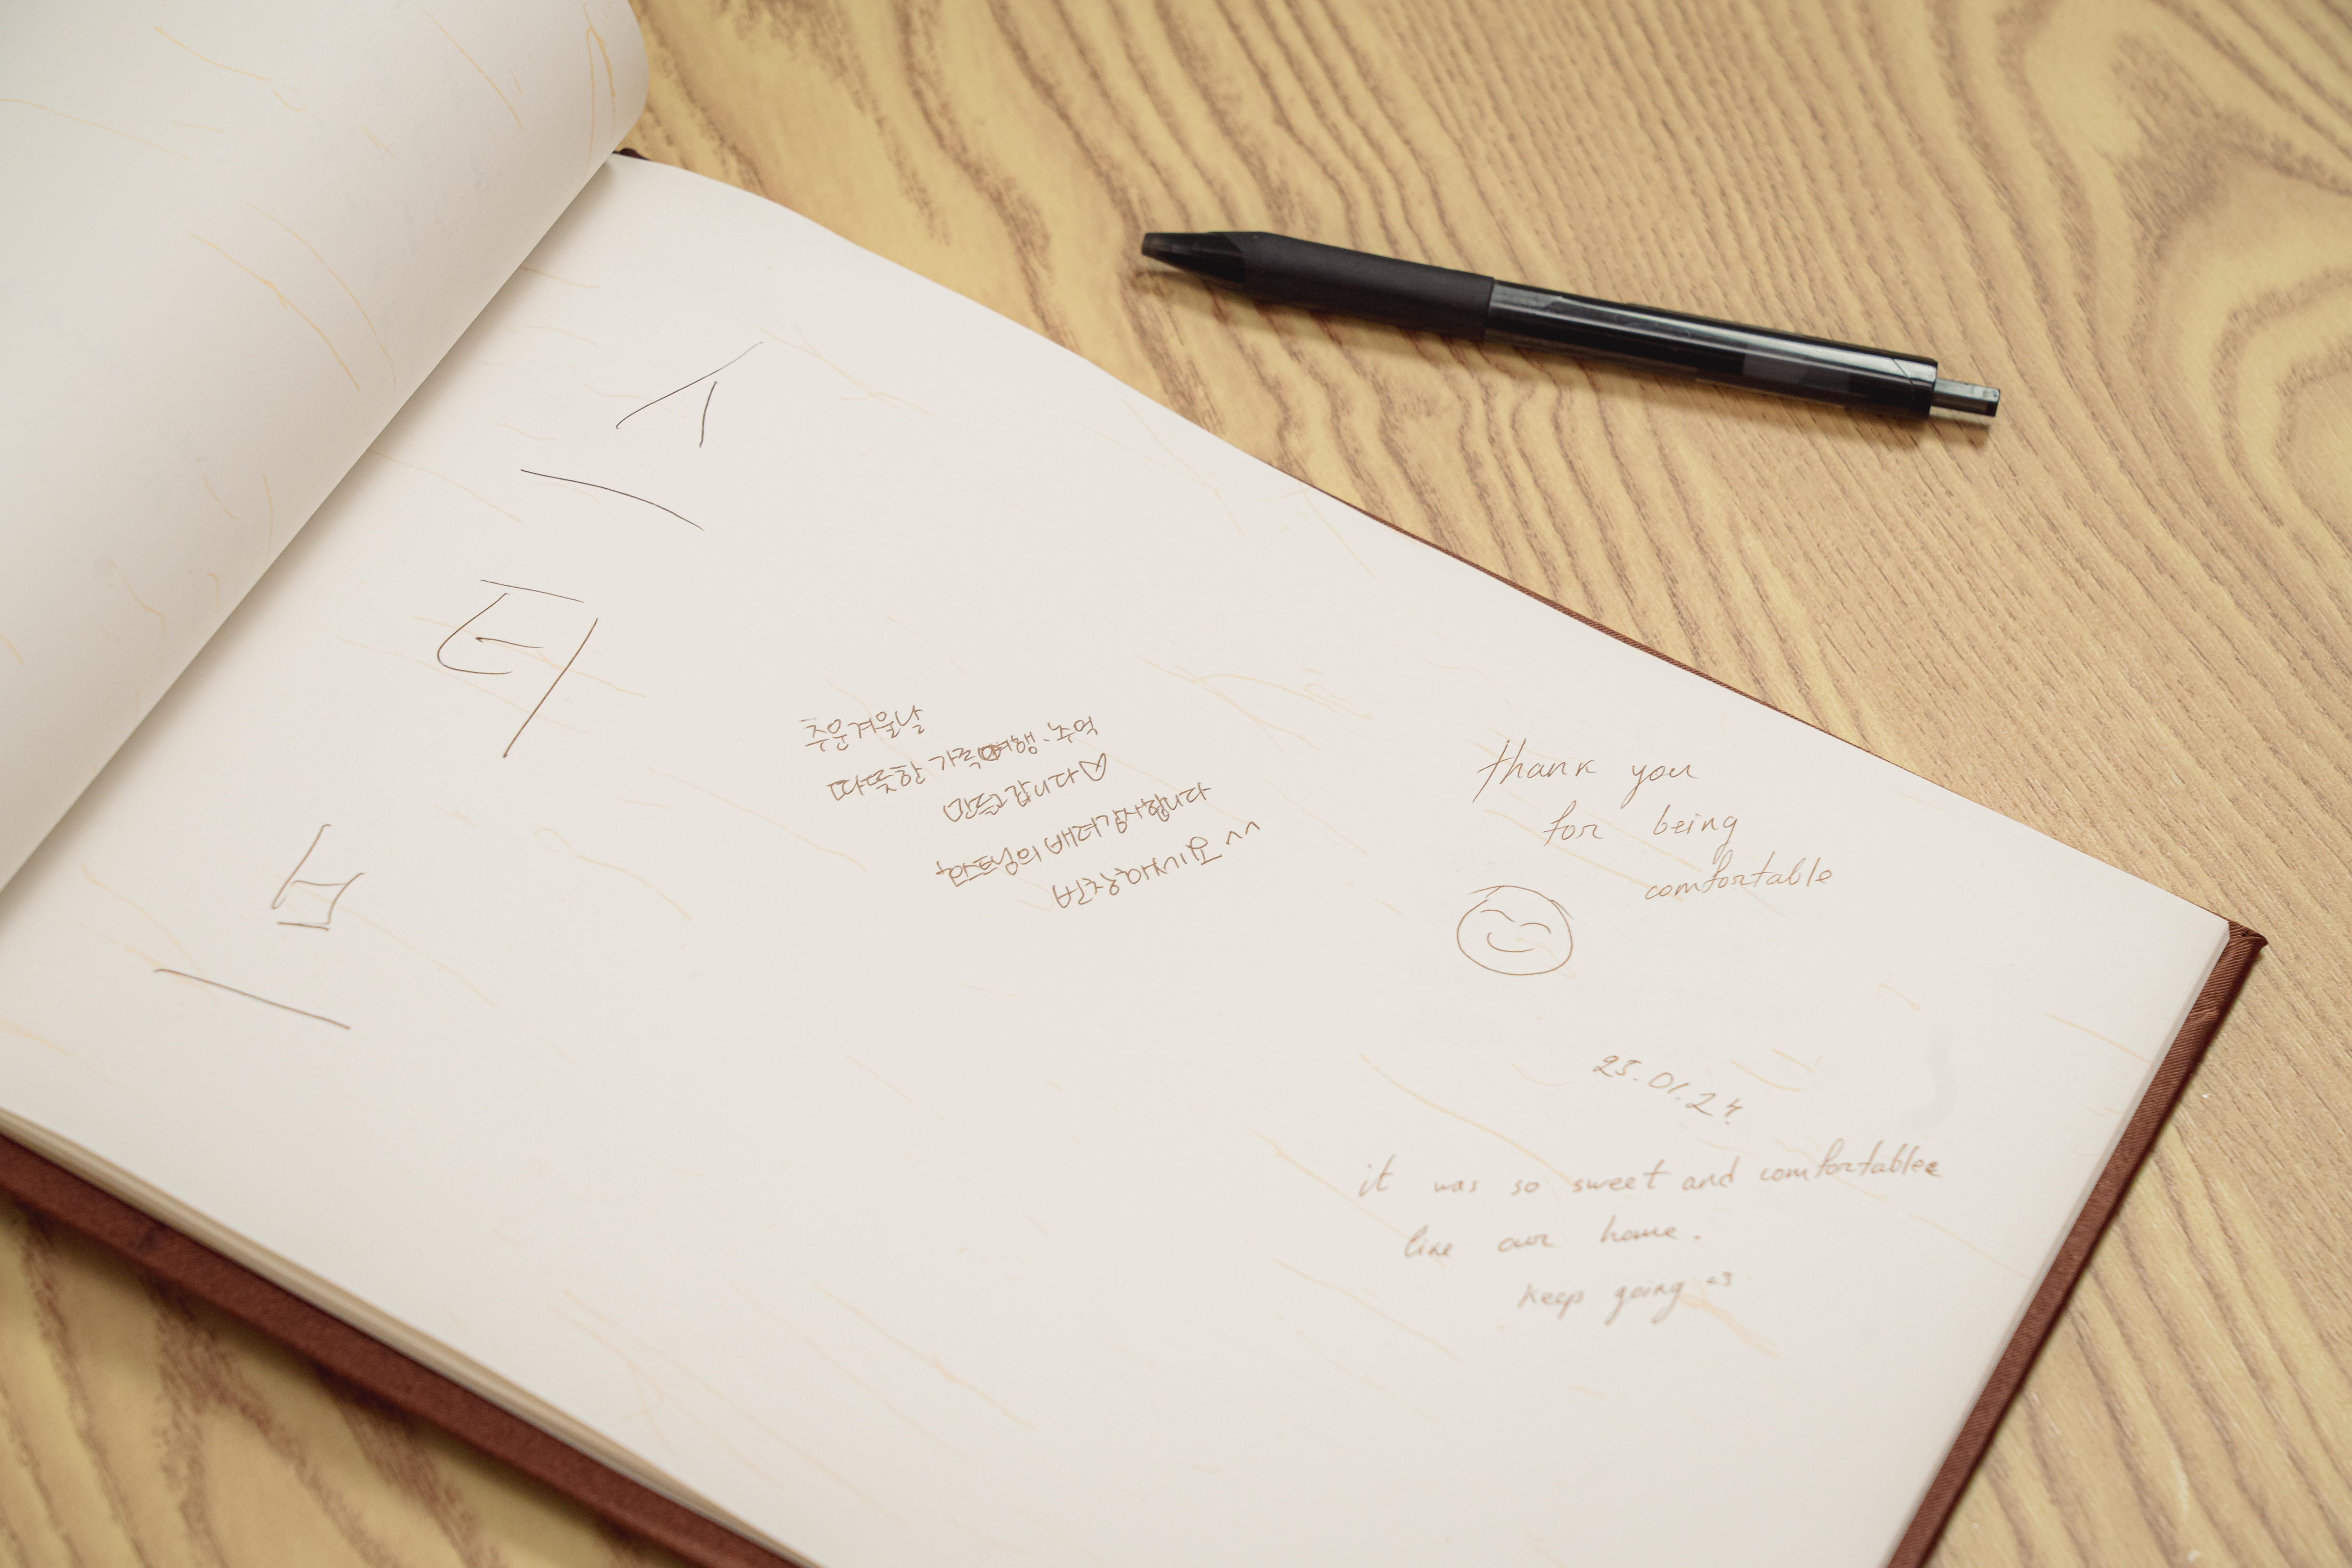 스
터
브
추운겨울날
따뜻한 가족여행·추억
만들고갑니다♡
호스트님의 배려감사합니다
번창하세요^^
thank you
for being
comfortable
25.01.24.
it was so sweet and comfortable
like our home.
keep going <3